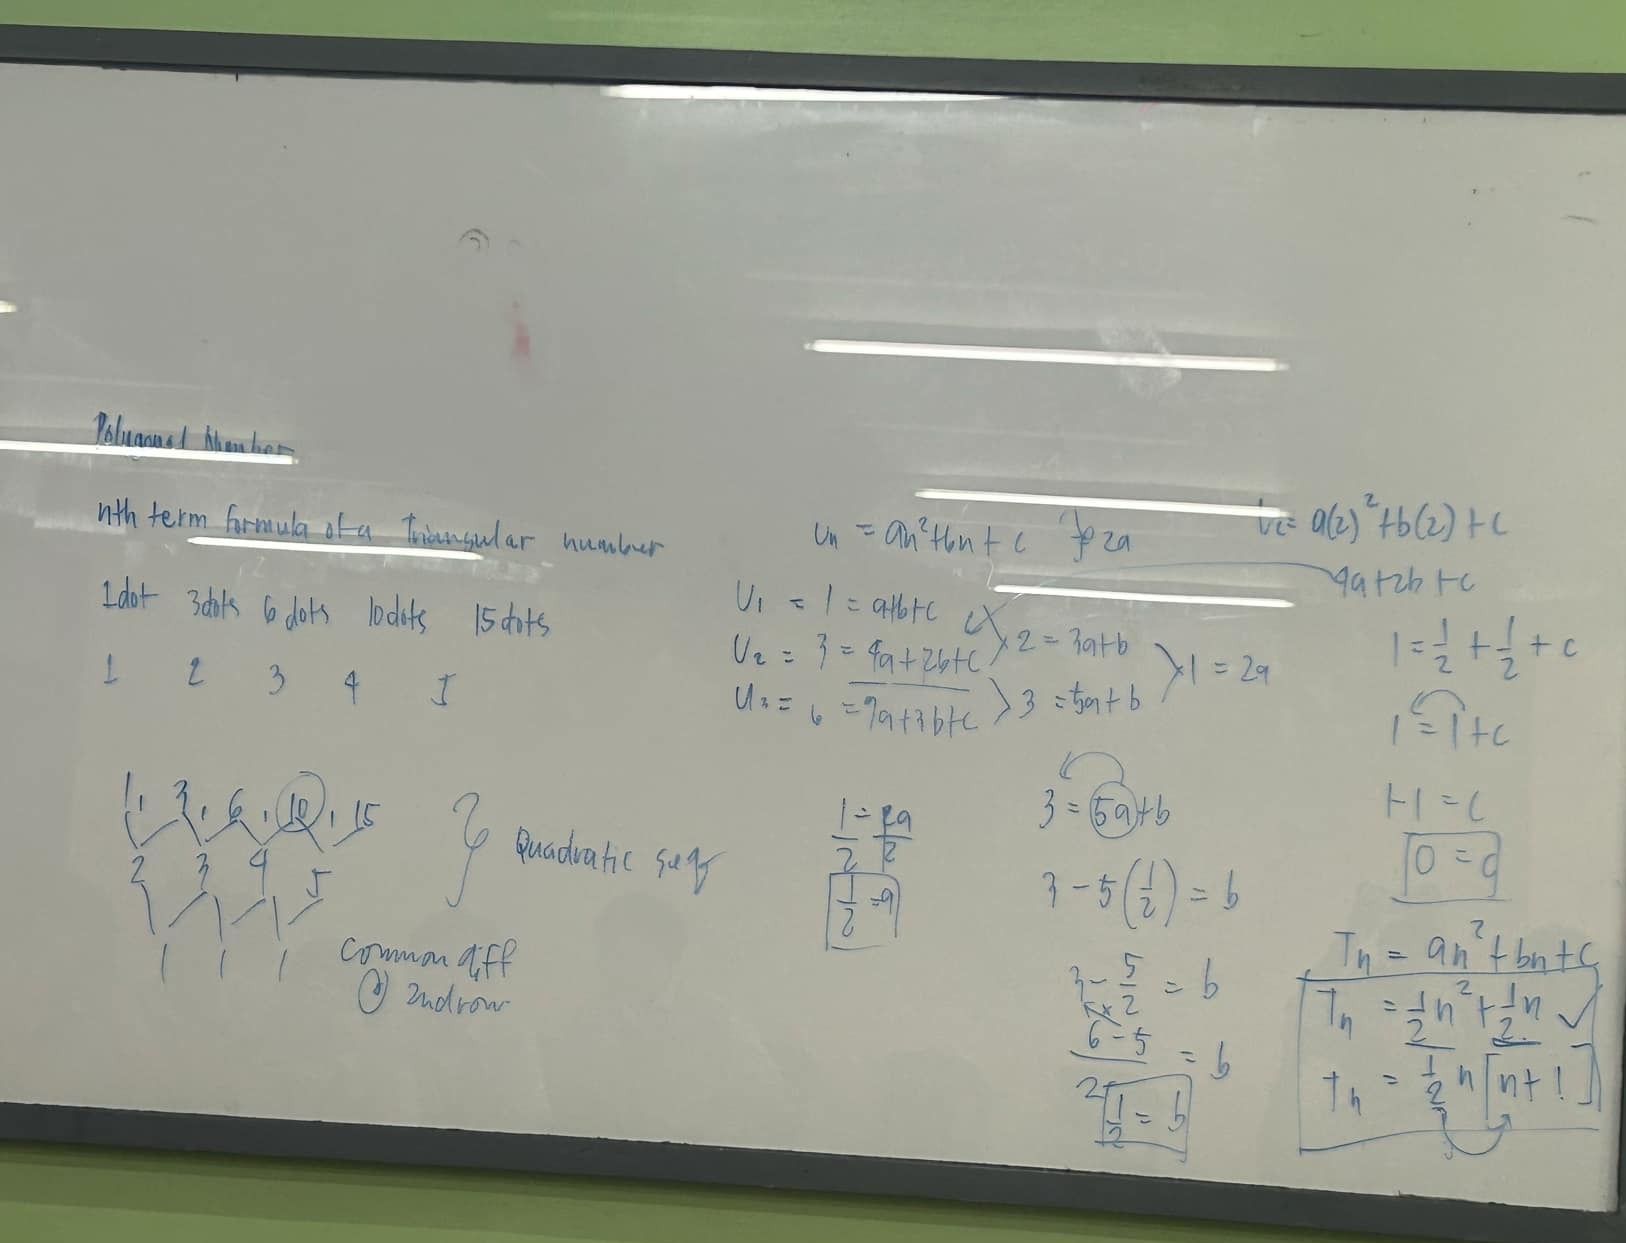 Polygonal Number
nth term formula of a Triangular number
1dot 3dots 6 dots 10dots 15 dots
1 2 3 4 5
1, 3, 6, 10, 15
2 3 4 5
1 1 1
Quadratic seq
common diff
@ 2nd row
Un = an²+bn+c } 2a
U₁ = 1 = a+b+c
U₂ = 3 = 4a+2b+c > 2 = 3a+b
U₃ = 6 = 9a+3b+c > 3 = 5a+b > 1 = 2a
U₂= a(2)²+b(2)+c
4a+2b+c
1/2 = 2a/2
1/2 = a
3 = 5a+b
3-5(1/2) = b
3 - 5/2 = b
(6-5)/2 = b
1/2 = b
1 = 1/2 + 1/2 + c
1 = 1+c
1-1 = c
0 = c
Tn = an²+bn+c
Tn = 1/2 n² + 1/2 n ✓
Tn = 1/2 n [n+1]